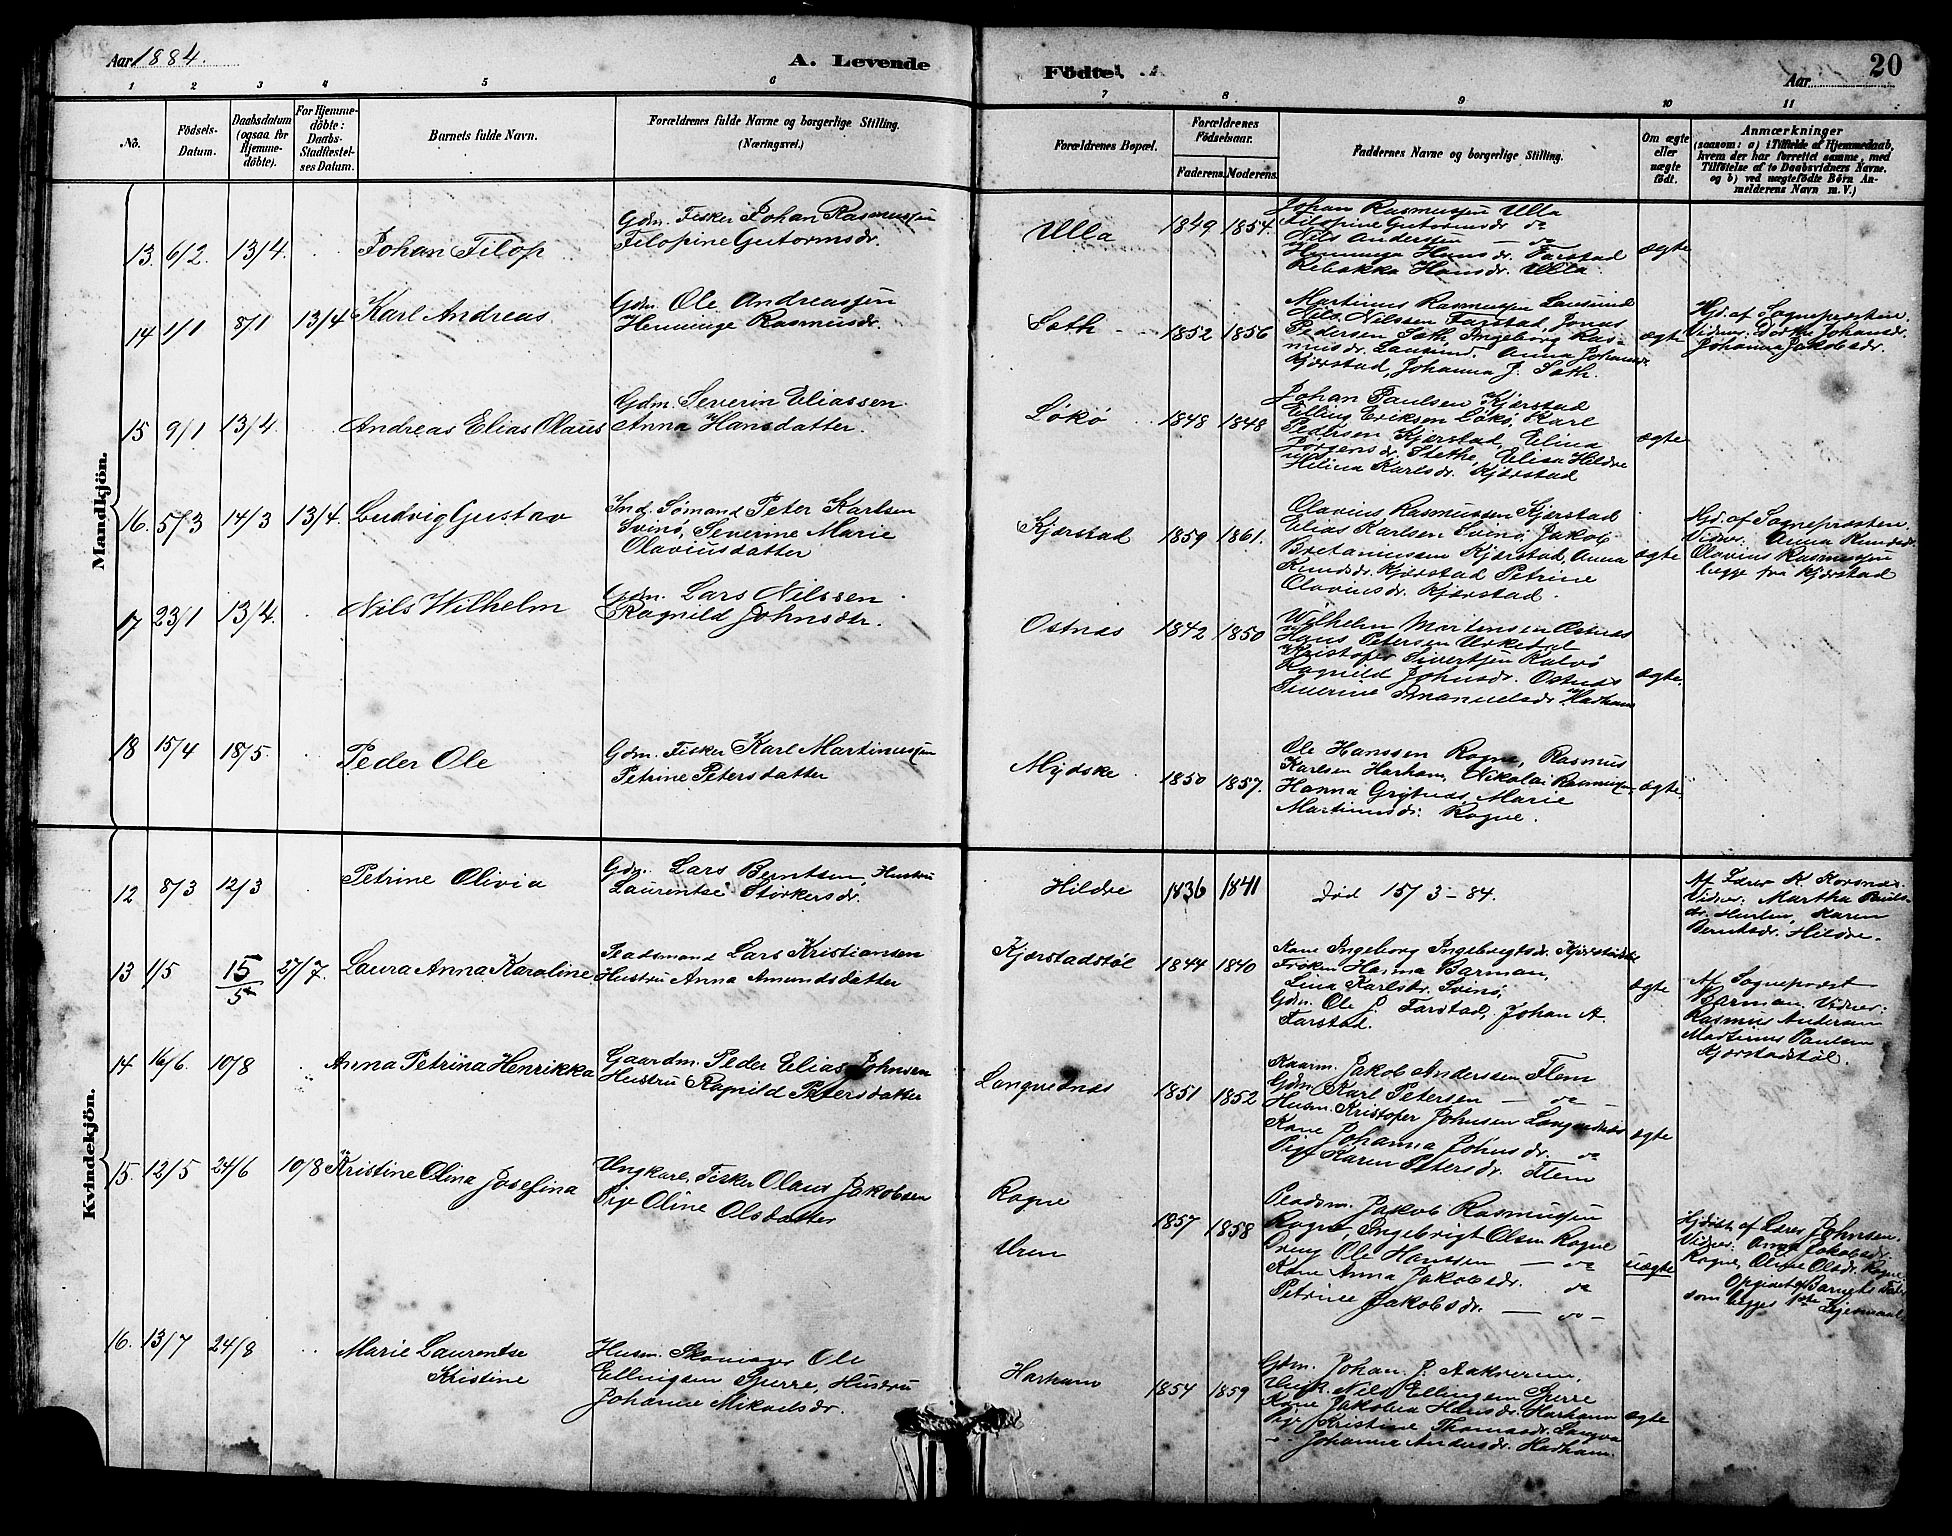 Aar 1884.
A. Levende
Födte.
20
Aar
1 2 3 4 5 6 7 8 9 10 11
No.
Födsels-
Datum.
Daabsdatum
(ogsaa for
Hjemme-
döbte).
For Hjemme-
döbte:
Daabs-
Stadfæstel-
ses Datum.
Barnets fulde Navn.
Forældrenes fulde Navne og borgerlige Stilling.
(Næringsvei.)
Forældrenes Bopæl.
Forældrenes
Födselsaar.
Faderens. Moderens.
Faddernes Navne og borgerlige Stilling.
Om ægte
eller
uægte
født.
Anmærkninger
(saasom: a) i Tilfælde af Hjemmedaab,
hvem der har forrettet samme, med
Tilföielse af to Daabsvidners Navne.
og b) ved uægtefödte Börn An-
melderens Navn m. V.)
Mandkjön.
13. 6/2. 13/4. Johan Filop
Gdm. Fisker Johan Rasmussen
Filopine Gutormsdr.
Ulla 1849 1854.
Johan Rasmussen Ulla
Filopine Gutormsdr do
Nils Anderssen — do
Hemminga Hansdr. Farstad
Rebekka Hansdr. Ulla.
ægte
14 1/1 8/1 13/4 Karl Andreas.
Gdm. Ole Andreassen
Hemminge Rasmusdr.
Søth 1852 1856
Martinus Rasmussen Lausund
Nils Nilssen Farstad, Jonas
Pedersen Søth, Ingeborg Ras-
musdr. Lausund. Anna Johansdr.
Kjærstad, Johanna J. Søth.
ægte
Hjd. af Sognepresten
Vidner: Dorthe Johansdr.
Johanna Jakobsdr.
15 9/1 13/4 Andreas Elias Olaus
Gdm. Severin Eliassen
Anna Hansdatter.
Løkø 1848 1848
Johan Paulsen Kjærstad
Elling Eriksen Løkø, Karl
Pedersen Kjærstad, Elina
Jørgensdr. Stethe, Elisa Hildre
Helina Karlsdr. Kjærstad
ægte
16. 5/3 14/3 13/4. Ludvig Gustav
Ind. Sømand Peter Karlsen
Svinø, Severine Marie
Olaviusdatter
Kjærstad 1859 1861.
Olavius Rasmussen Kjærstad
Elias Karlsen Svinø, Jakob
Bretanussen Kjærstad, Anna
Knudsdr. Kjærstad Petrine
Olaviusdr. Kjærstad.
ægte
Hjd. af Sognepræsten
Vidner: Anna Knudsdr.
Olavius Rasmussen
begge fra Kjærstad
17 23/1 13/4. Nils Wilhelm
Gdm. Lars Nilssen
Ragnild Johnsdr.
Ostnæs 1842 1850
Wilhelm Martinsen Ostnæs
Hans Petersen Urkedal
Kristofer Sivertsen Kalvø
Ragnild Johnsdr. Ostnæs
Severine Emanuelsdr. Harham
ægte.
18 15/4 18/5. Peder Ole
Gdm. Fisker Karl Martinussen
Petrine Petersdatter
Mydske 1850 1857.
Ole Hanssen Rogne, Rasmus
Karlsen Harham, Nikolai Rasmussen,
Hanna Grytnes, Marie
Martinusdr: Rogne.
ægte.
Kvindekjön.
12 8/3 12/3 Petrine Olivia
Gdm. Lars Berntsen, Hustru
Laurentse Størkersdr.
Hildre 1836 1841
død 15/3 - 84.
Af Lærer K. Korsnes.
Vidner: Martha Pauls-
dr. Hurlen, Karen
Berntsdr. Hildre.
13 1/5 15/5 27/7. Laura Anna Karoline
Pladsmand Lars Kristiansen
Hustru Anna Amundsdatter
Kjærstadstøl 1844 1840
Kone Ingeborg Ingebrigtsdr. Kjærstadstøl
Frøken Hanna Barman,
Lina Karlsdr. Svinø,
Gdm. Ole J. Farstad, Johan A.
Farstad.
ægte
Af Sogneprest
Barman, Vidner:
Rasmus Andersen
Martinus Paulsen
Kjærstadstøl.
14 16/6 10/8 Anna Petrina Henrikka
Gaardm. Peder Elias Johnsen
Hustru Ragnild Petersdatter
Longvednæs 1851 1852
Kaarm. Jakob Anderssen Flem
Gdm. Karl Petersen — do —
Husm. Kristofer Johnsen Longvednæs
Kone Johanna Johnsdr. do
Pige Karen Petersdr. Flem
ægte
15. 12/5 24/6 10/8 Kristine Olina Josefina
Ungkarl, Fisker Olaus Jakobsen
Pige Oline Olsdatter
Rogne
Uren
1857 1858
Pladsm. Jakob Rasmussen
Rogne, Ingebrigt Olsen Rogne
Dreng Ole Hanssen — do
Kone Anna Jakobsdr. do
Petrine Jakobsdr. — do —
uægte
Hjdøbt af Lærer Johnsen.
Vidner: Anna Jakobsdr.
Rogne, Oline Olsdr. Rogne
Opgivet af Barnets Fader
som begges 1ste Lejermaal.
16. 13/7 24/8 Marie Laurentse
Kristine
Husm. Skomager Ole
Ellingsen Sperre, Hustru
Johanne Mikaelsdr.
Harham 1854 1859
Gdm. Johan J. Aakseren,
Ungk. Nils Ellingsen Sperre
Kone Jakobea Hansdr. Harham
Pige Kristine Thomasdr. Longva
— Johanna Andersdr. Harham.
ægte